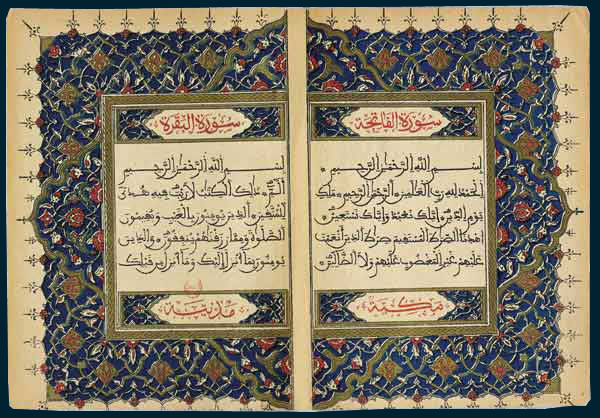 سورة الفاتحة
بسم الله الرحمن الرحيم
الحمد لله رب العالمين الرحمن الرحيم ملك
يوم الدين إياك نعبد وإياك نستعين
اهدنا الصراط المستقيم صراط الذين أنعمت
عليهم غير المغضوب عليهم ولا الضالين
مكية
سورة البقرة
بسم الله الرحمن الرحيم
الم ذلك الكتاب لا ريب فيه هدى
للمتقين الذين يومنون بالغيب ويقيمون
الصلوة ومما رزقناهم ينفقون والذين
يومنون بما أنزل إليك وما أنزل من قبلك
مدنية